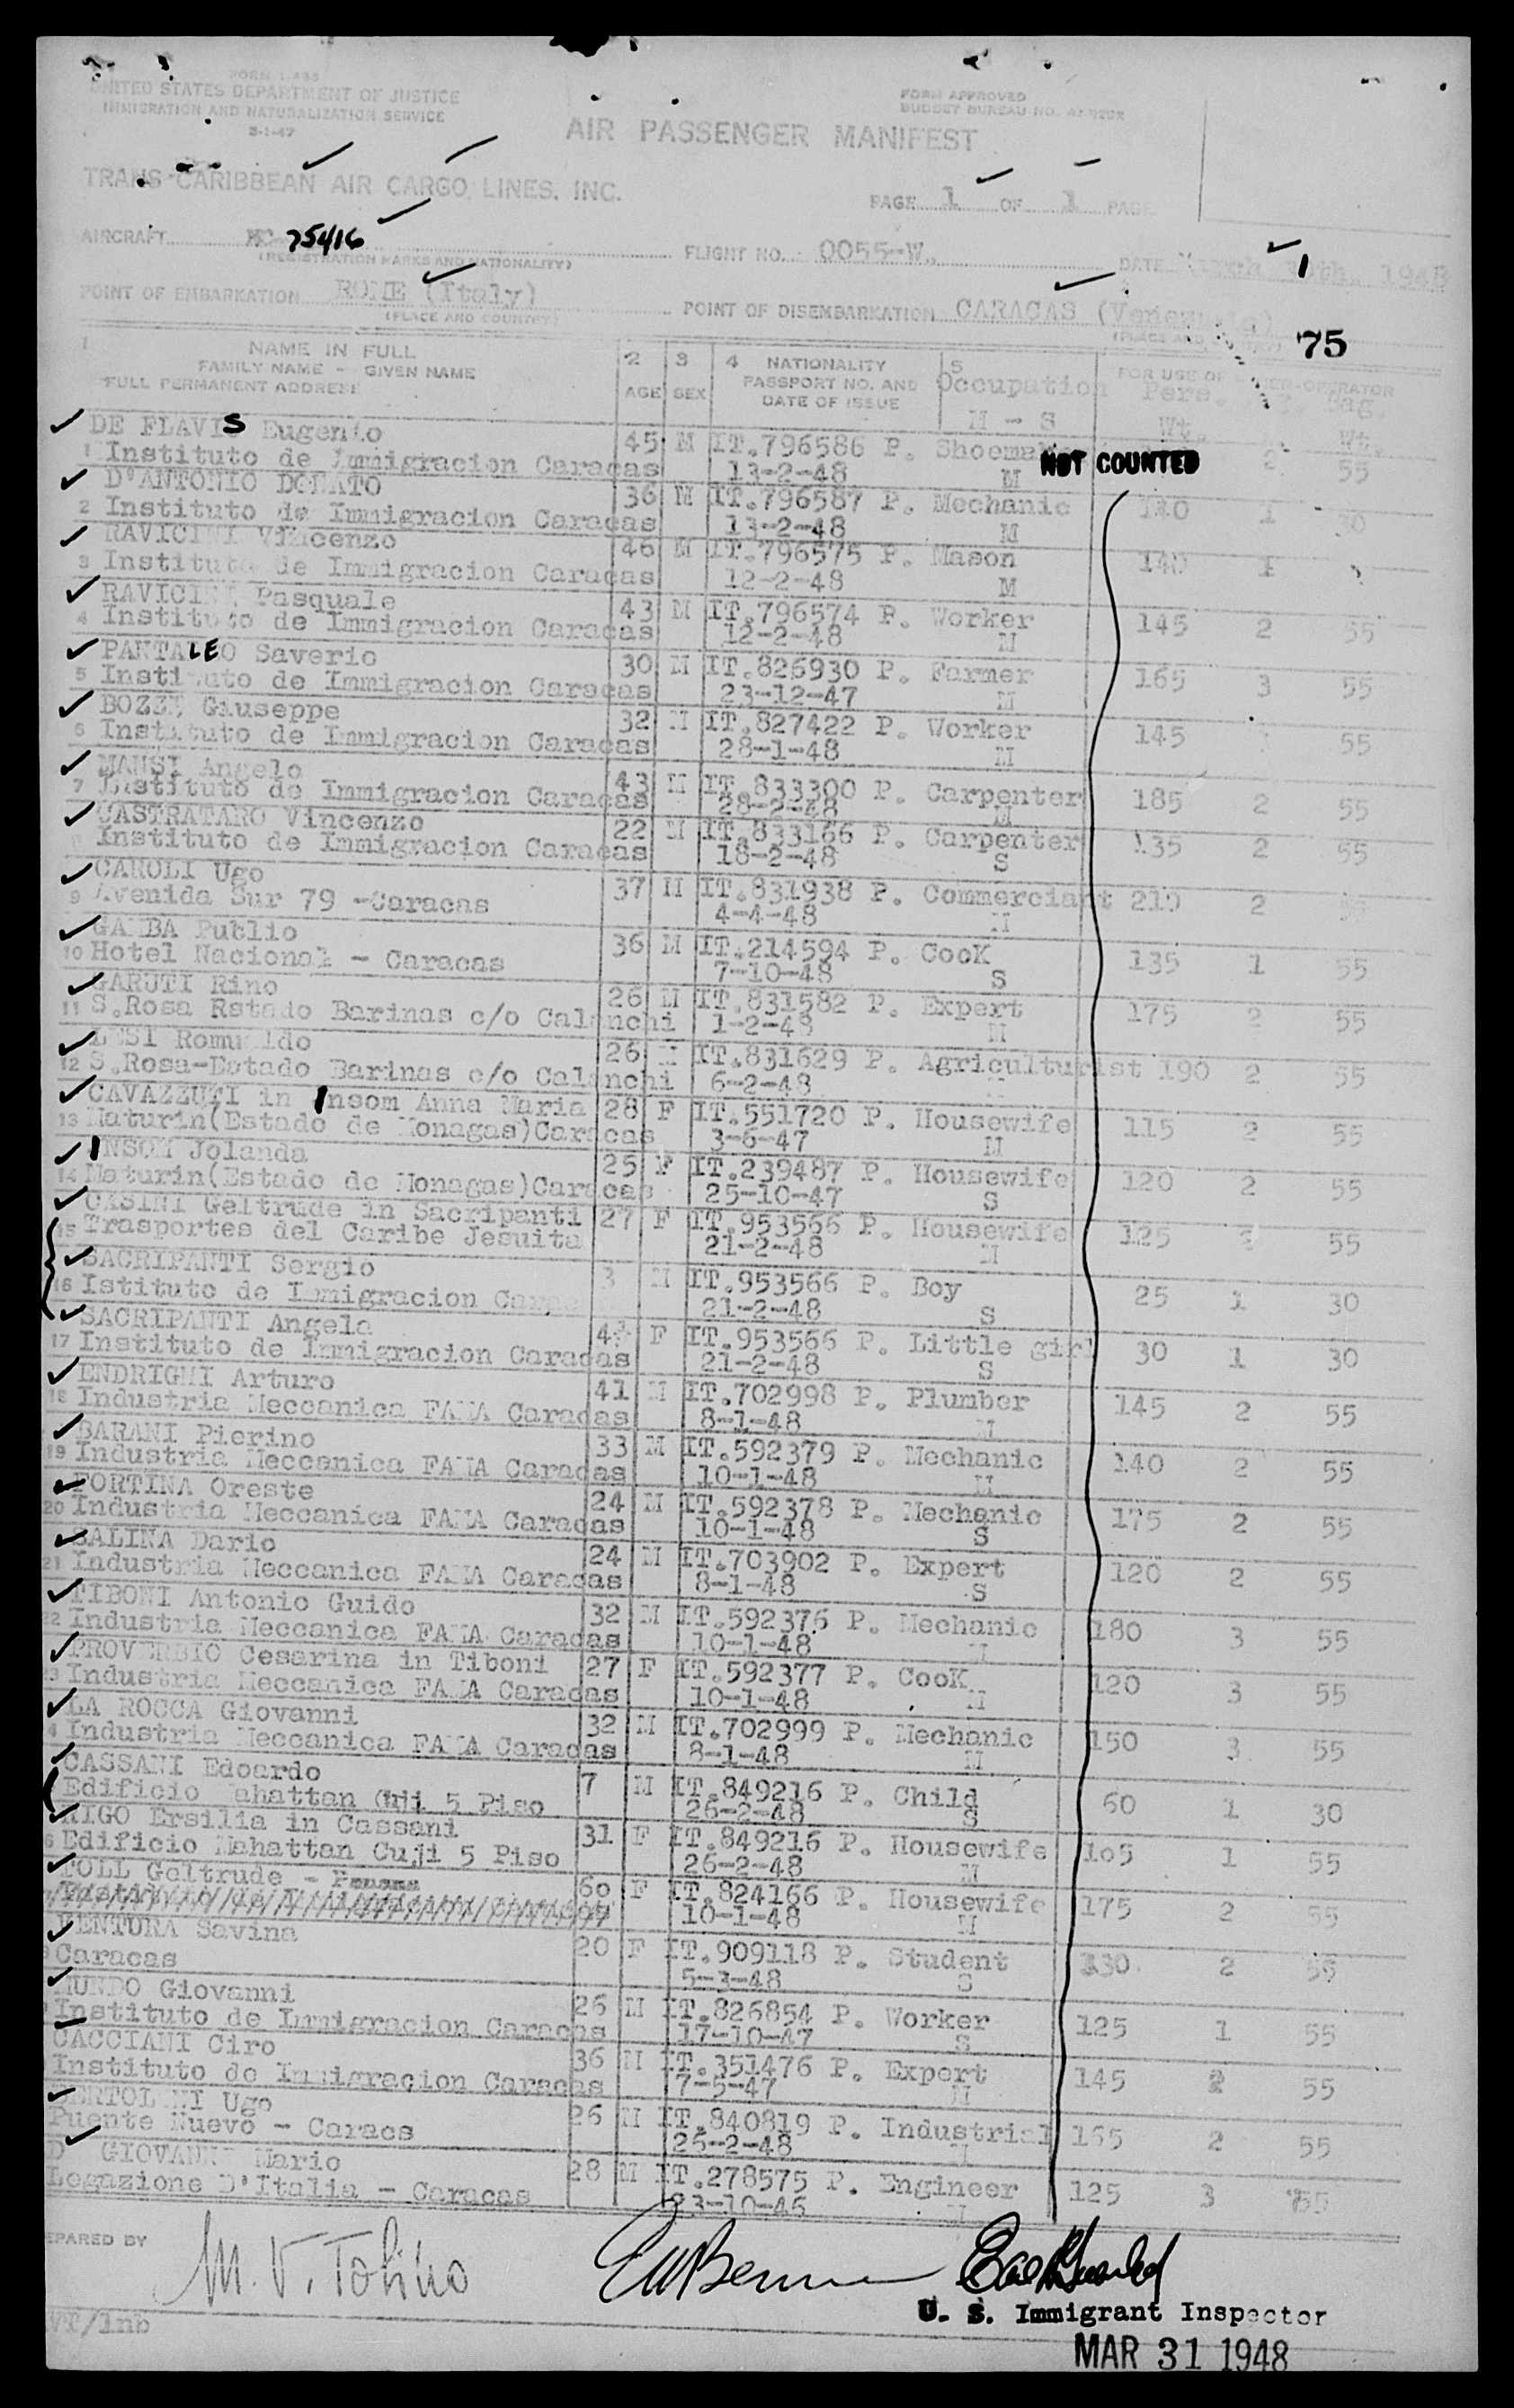 FORM I-466
UNITED STATES DEPARTMENT OF JUSTICE
IMMIGRATION AND NATURALIZATION SERVICE
3-1-47
FORM APPROVED
BUDGET BUREAU NO.
AIR PASSENGER MANIFEST
TRANS-CARIBBEAN AIR CARGO LINES, INC.
PAGE 1 OF 1 PAGE
AIRCRAFT 75416 FLIGHT NO. 0055-W. DATE March 1948
(REGISTRATION MARKS AND NATIONALITY)
POINT OF EMBARKATION ROME (Italy) POINT OF DISEMBARKATION CARACAS (Venezuela)
(PLACE AND COUNTRY) (PLACE AND
75
1 NAME IN FULL 2 3 4 NATIONALITY 5
FAMILY NAME - GIVEN NAME AGE SEX PASSPORT NO. AND Occupation FOR USE OF OWNER-OPERATOR
FULL PERMANENT ADDRESS DATE OF ISSUE M - S Pers. Wt. Bag. Wt.
DE FLAVIS Eugenio 45 M IT.796586 P. Shoemak NOT COUNTED 2 55
1 Instituto de Immigracion Caracas 13-2-48 M
D'ANTONIO DONATO 36 M IT.796587 P. Mechanic 1
2 Instituto de Immigracion Caracas 13-2-48 M
RAVICINI Vincenzo 46 M IT.796575 P. Mason 140 1
3 Instituto de Immigracion Caracas 12-2-48 M
RAVICINI Pasquale 43 M IT.796574 P. Worker 145 2 55
4 Instituto de Immigracion Caracas 12-2-48 M
PANTALEO Saverio 30 M IT.826930 P. Farmer 165 3 55
5 Instituto de Immigracion Caracas 23-12-47 M
BOZZI Giuseppe 32 M IT.827422 P. Worker 145 55
6 Instituto de Immigracion Caracas 28-1-48 M
MANSI Angelo 43 M IT.833300 P. Carpenter 185 2 55
7 Instituto de Immigracion Caracas 28-2-48 M
CASTRATARO Vincenzo 22 M IT.833166 P. Carpenter 135 2 55
Instituto de Immigracion Caracas 18-2-48 S
CAROLI Ugo 37 M IT.831938 P. Commerciant 210 2 55
9 Avenida Sur 79 -Caracas 4-4-48 M
GAMBA Publio 36 M IT.214594 P. CooK 135 1 55
10 Hotel Nacional - Caracas 7-10-48 S
GARUTI Rino 26 M IT.831582 P. Expert 175 2 55
11 S.Rosa Rstado Barinas c/o Calanchi 1-2-48 M
LESI Romualdo 26 M IT.831629 P. Agriculturist 190 2 55
12 S.Rosa-Estado Barinas c/o Calanchi 6-2-48
CAVAZZUTI in Insom Anna Maria 28 F IT.551720 P. Housewife 115 2 55
13 Maturin(Estado de Monagas)Caracas 3-6-47 M
INSOM Jolanda 25 F IT.239487 P. Housewife 120 2 55
14 Maturin(Estado de Monagas)Caracas 25-10-47 S
CASINI Geltrude in Sacripanti 27 F IT.953566 P. Housewife 125 55
15 Trasportes del Caribe Jesuita 21-2-48 M
SACRIPANTI Sergio 3 M IT.953566 P. Boy 25 1 30
16 Istituto de Immigracion 21-2-48 S
SACRIPANTI Angela F IT.953566 P. Little girl 30 1 30
17 Instituto de Immigracion Caracas 21-2-48 S
ENDRIGHI Arturo 41 M IT.702998 P. Plumber 145 2 55
18 Industria Meccanica FAMA Caracas 8-1-48 M
BARANI Pierino 33 M IT.592379 P. Mechanic 140 2 55
19 Industria Meccanica FAMA Caracas 10-1-48 M
FORTINA Oreste 24 M IT.592378 P. Mechanic 175 2 55
20 Industria Meccanica FAMA Caracas 10-1-48 S
SALINA Dario 24 M IT.703902 P. Expert 120 2 55
21 Industria Meccanica FAMA Caracas 8-1-48 S
TIBONI Antonio Guido 32 M IT.592376 P. Mechanic 180 3 55
22 Industria Meccanica FAMA Caracas 10-1-48 M
PROVERBIO Cesarina in Tiboni 27 F IT.592377 P. CooK 120 3 55
Industria Meccanica FAMA Caracas 10-1-48 M
LA ROCCA Giovanni 32 M IT.702999 P. Mechanic 150 3 55
Industria Meccanica FAMA Caracas 8-1-48 M
CASSANI Edoardo 7 M IT.849216 P. Child 60 1 30
Edificio ahattan Cuji 5 Piso 26-2-48 S
RIGO Ersilia in Cassani 31 F IT.849216 P. Housewife 105 1 55
Edificio Mahattan Cuji 5 Piso 26-2-48 M
TOLL Geltrude - 60 F IT.824166 P. Housewife 175 2 55
10-1-48 M
VENTURA Savina 20 F IT.909118 P. Student 130 2 55
Caracas 5-3-48 S
MUNDO Giovanni 26 M IT.826854 P. Worker 125 1 55
Instituto de Immigracion Caracas 17-10-47 S
CACCIANI Ciro 36 M IT.351476 P. Expert 145 2 55
Instituto de Immigracion Caracas 7-5-47 M
BERTOLINI Ugo 26 M IT.840819 P. Industrial 165 2 55
Puente Nuevo - Caracs 26-2-48 M
D GIOVANNI Mario 28 M IT.278575 P. Engineer 125 3 55
Legazione D'Italia - Caracas 23-10-46 M
EPARED BY M. V. Tofino
U. S. Immigrant Inspector
VT/lnb
MAR 31 1948